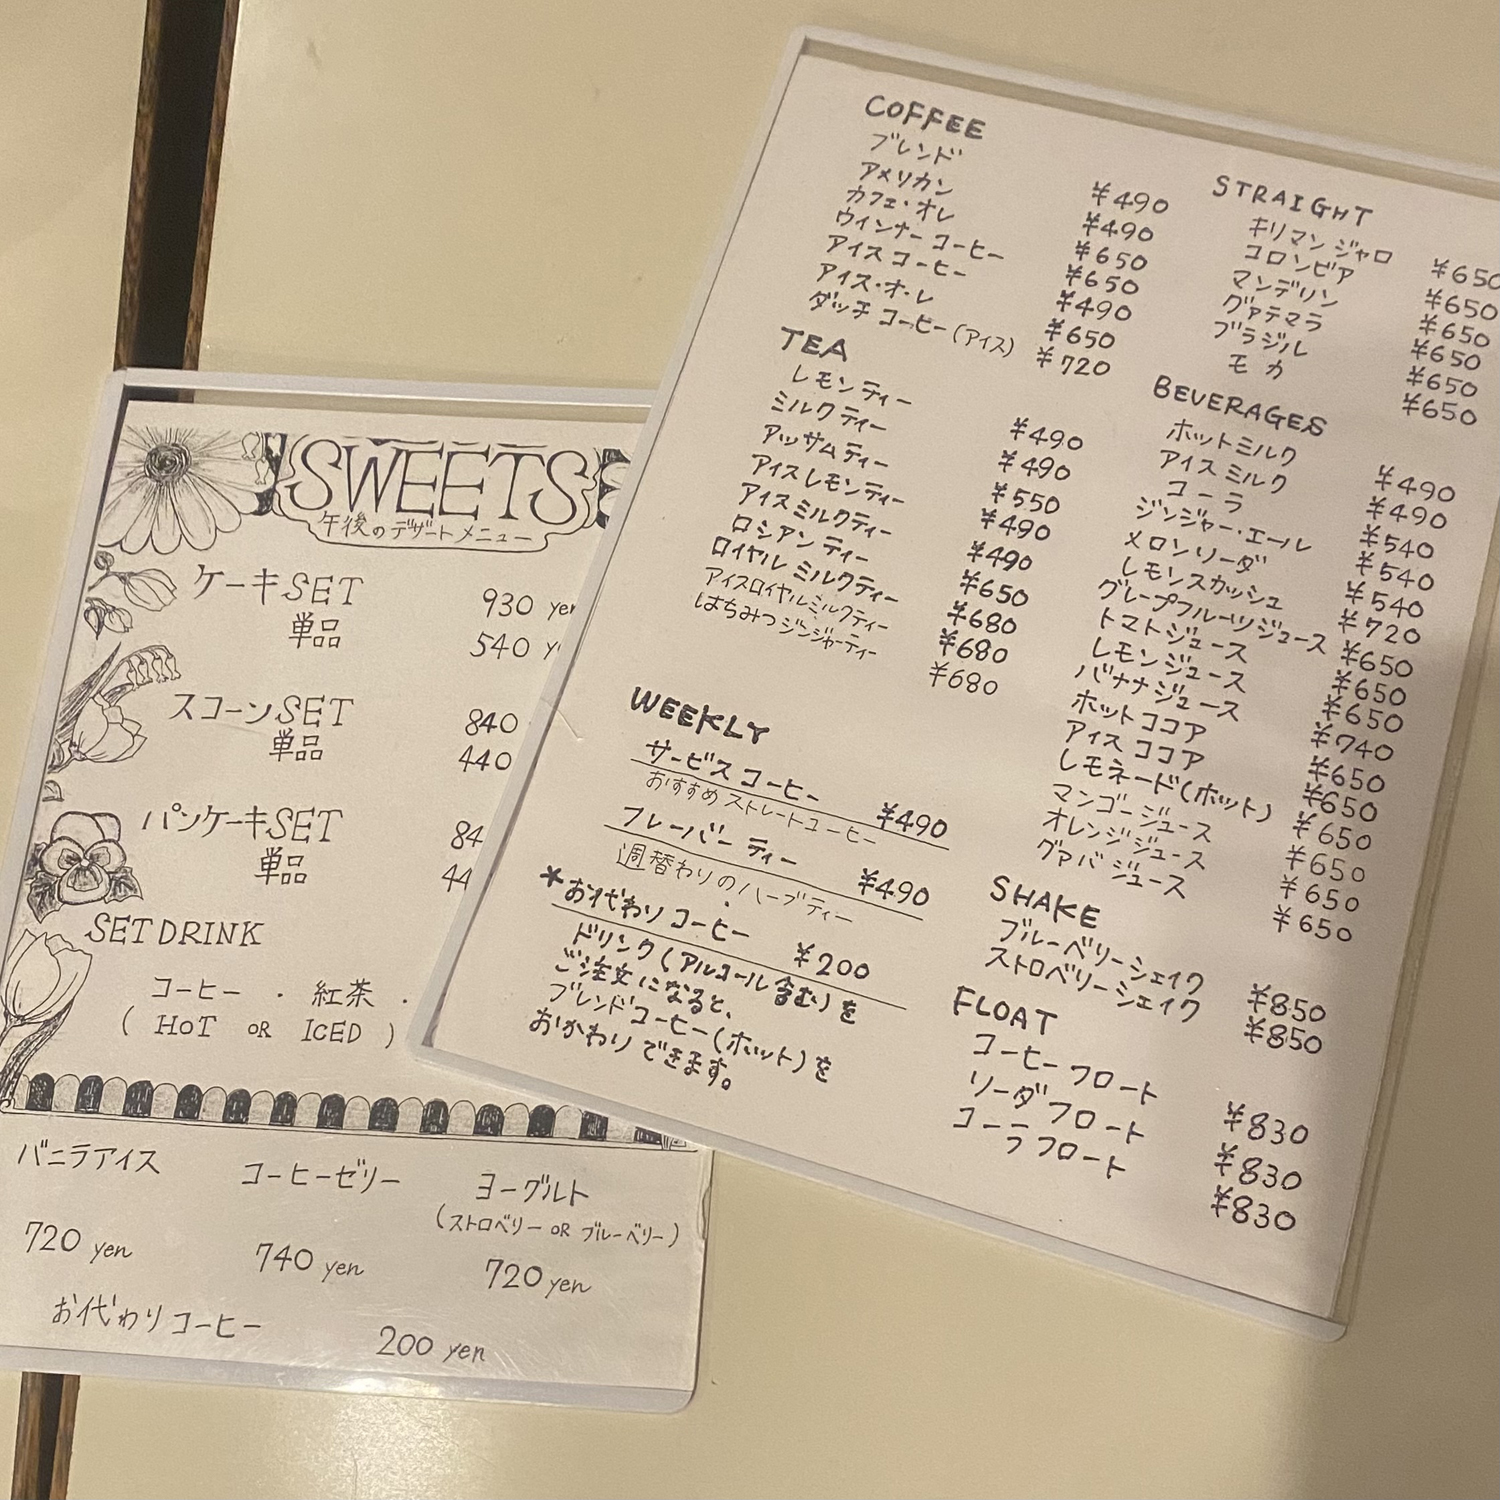 COFFEE
ブレンド ¥490
アメリカン ¥490
カフェ・オレ ¥650
ウインナーコーヒー ¥650
アイスコーヒー ¥490
アイス・オ・レ ¥650
ダッチコーヒー(アイス) ¥720
TEA
レモンティー ¥490
ミルクティー ¥490
アッサムティー ¥550
アイスレモンティー ¥490
アイスミルクティー ¥490
ロシアンティー ¥650
ロイヤルミルクティー ¥680
アイスロイヤルミルクティー ¥680
はちみつジンジャーティー ¥680
WEEKLY
サービスコーヒー ¥490
おすすめストレートコーヒー
フレーバーティー ¥490
週替わりのハーブティー
*お代わりコーヒー ¥200
ドリンク(アルコール含む)を
ご注文になると、
ブレンドコーヒー(ホット)を
おかわりできます。
STRAIGHT
キリマンジャロ ¥650
コロンビア ¥650
マンデリン ¥650
グァテマラ ¥650
ブラジル ¥650
モカ ¥650
BEVERAGES
ホットミルク ¥490
アイスミルク ¥490
コーラ ¥540
ジンジャー・エール ¥540
メロンソーダ ¥540
レモンスカッシュ ¥720
グレープフルーツジュース ¥650
トマトジュース ¥650
レモンジュース ¥650
バナナジュース ¥740
ホットココア ¥650
アイスココア ¥650
レモネード(ホット) ¥650
マンゴージュース ¥650
オレンジジュース ¥650
グァバジュース ¥650
SHAKE
ブルーベリーシェイク ¥850
ストロベリーシェイク ¥850
FLOAT
コーヒーフロート ¥830
ソーダフロート ¥830
コーラフロート ¥830
SWEETS
午後のデザートメニュー
ケーキSET 930 yen
単品 540 y
スコーンSET 840
単品 440
パンケーキSET 84
単品 44
SET DRINK
コーヒー ・ 紅茶 ・
( HOT OR ICED )
バニラアイス 720 yen
コーヒーゼリー 740 yen
ヨーグルト
(ストロベリー OR ブルーベリー)
720 yen
お代わりコーヒー 200 yen